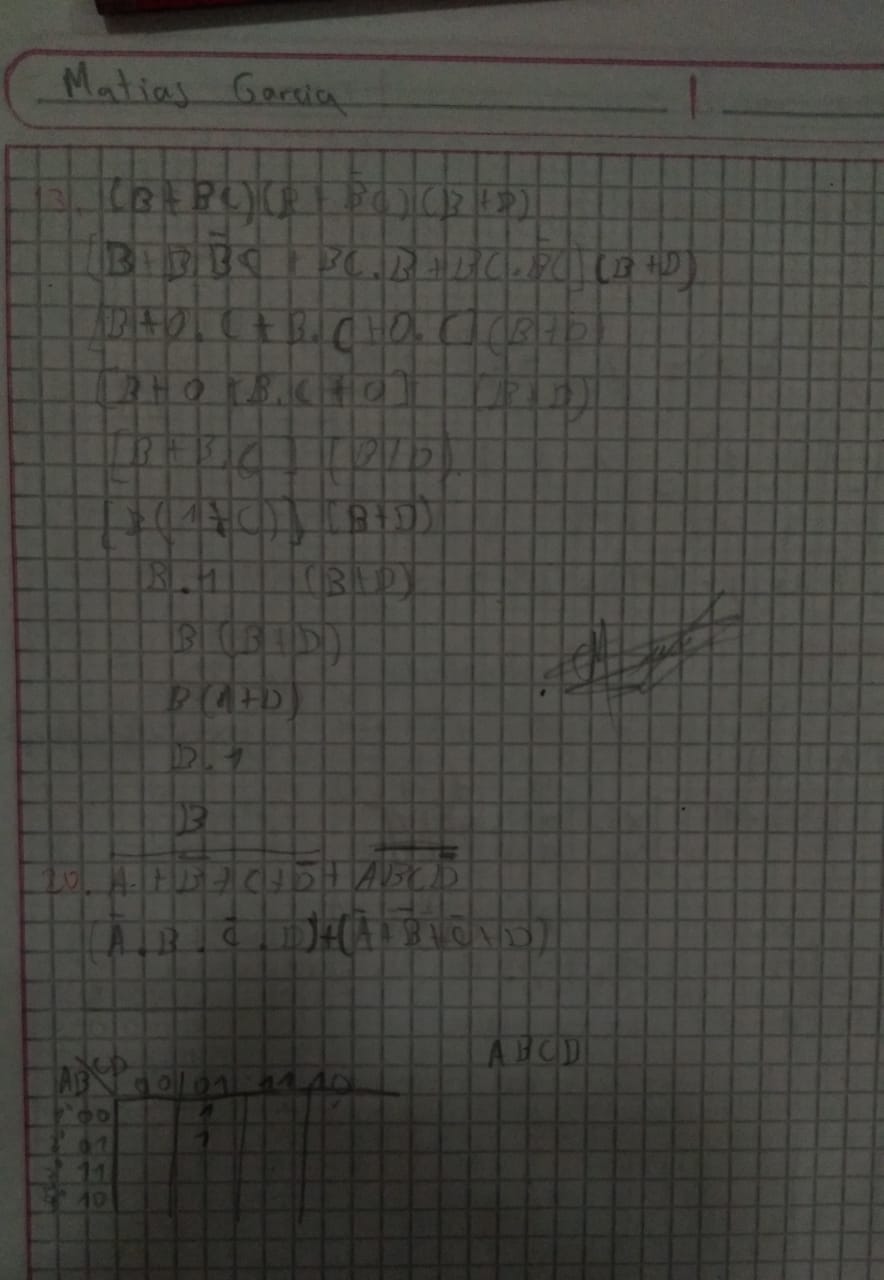 Matias Garcia
13. (B+BC)(B+B̄C)(B+D)
[B+B.B̄C+BC.B+BC.B̄C](B+D)
[B+0.C+B.C+0.C](B+D)
[B+0+B.C+0] (B+D)
[B+B.C] (B+D)
[B(1+C)] (B+D)
B.1 (B+D)
B(B+D)
B(1+D)
B.1
B
20. \overline{A+B̄+C+D̄}+\overline{ABCD̄}
(Ā.B.C̄.D)+(Ā+B̄+C̄+D)
ABCD
AB\CD 00 01 11 10
00 1
01 1
11
10